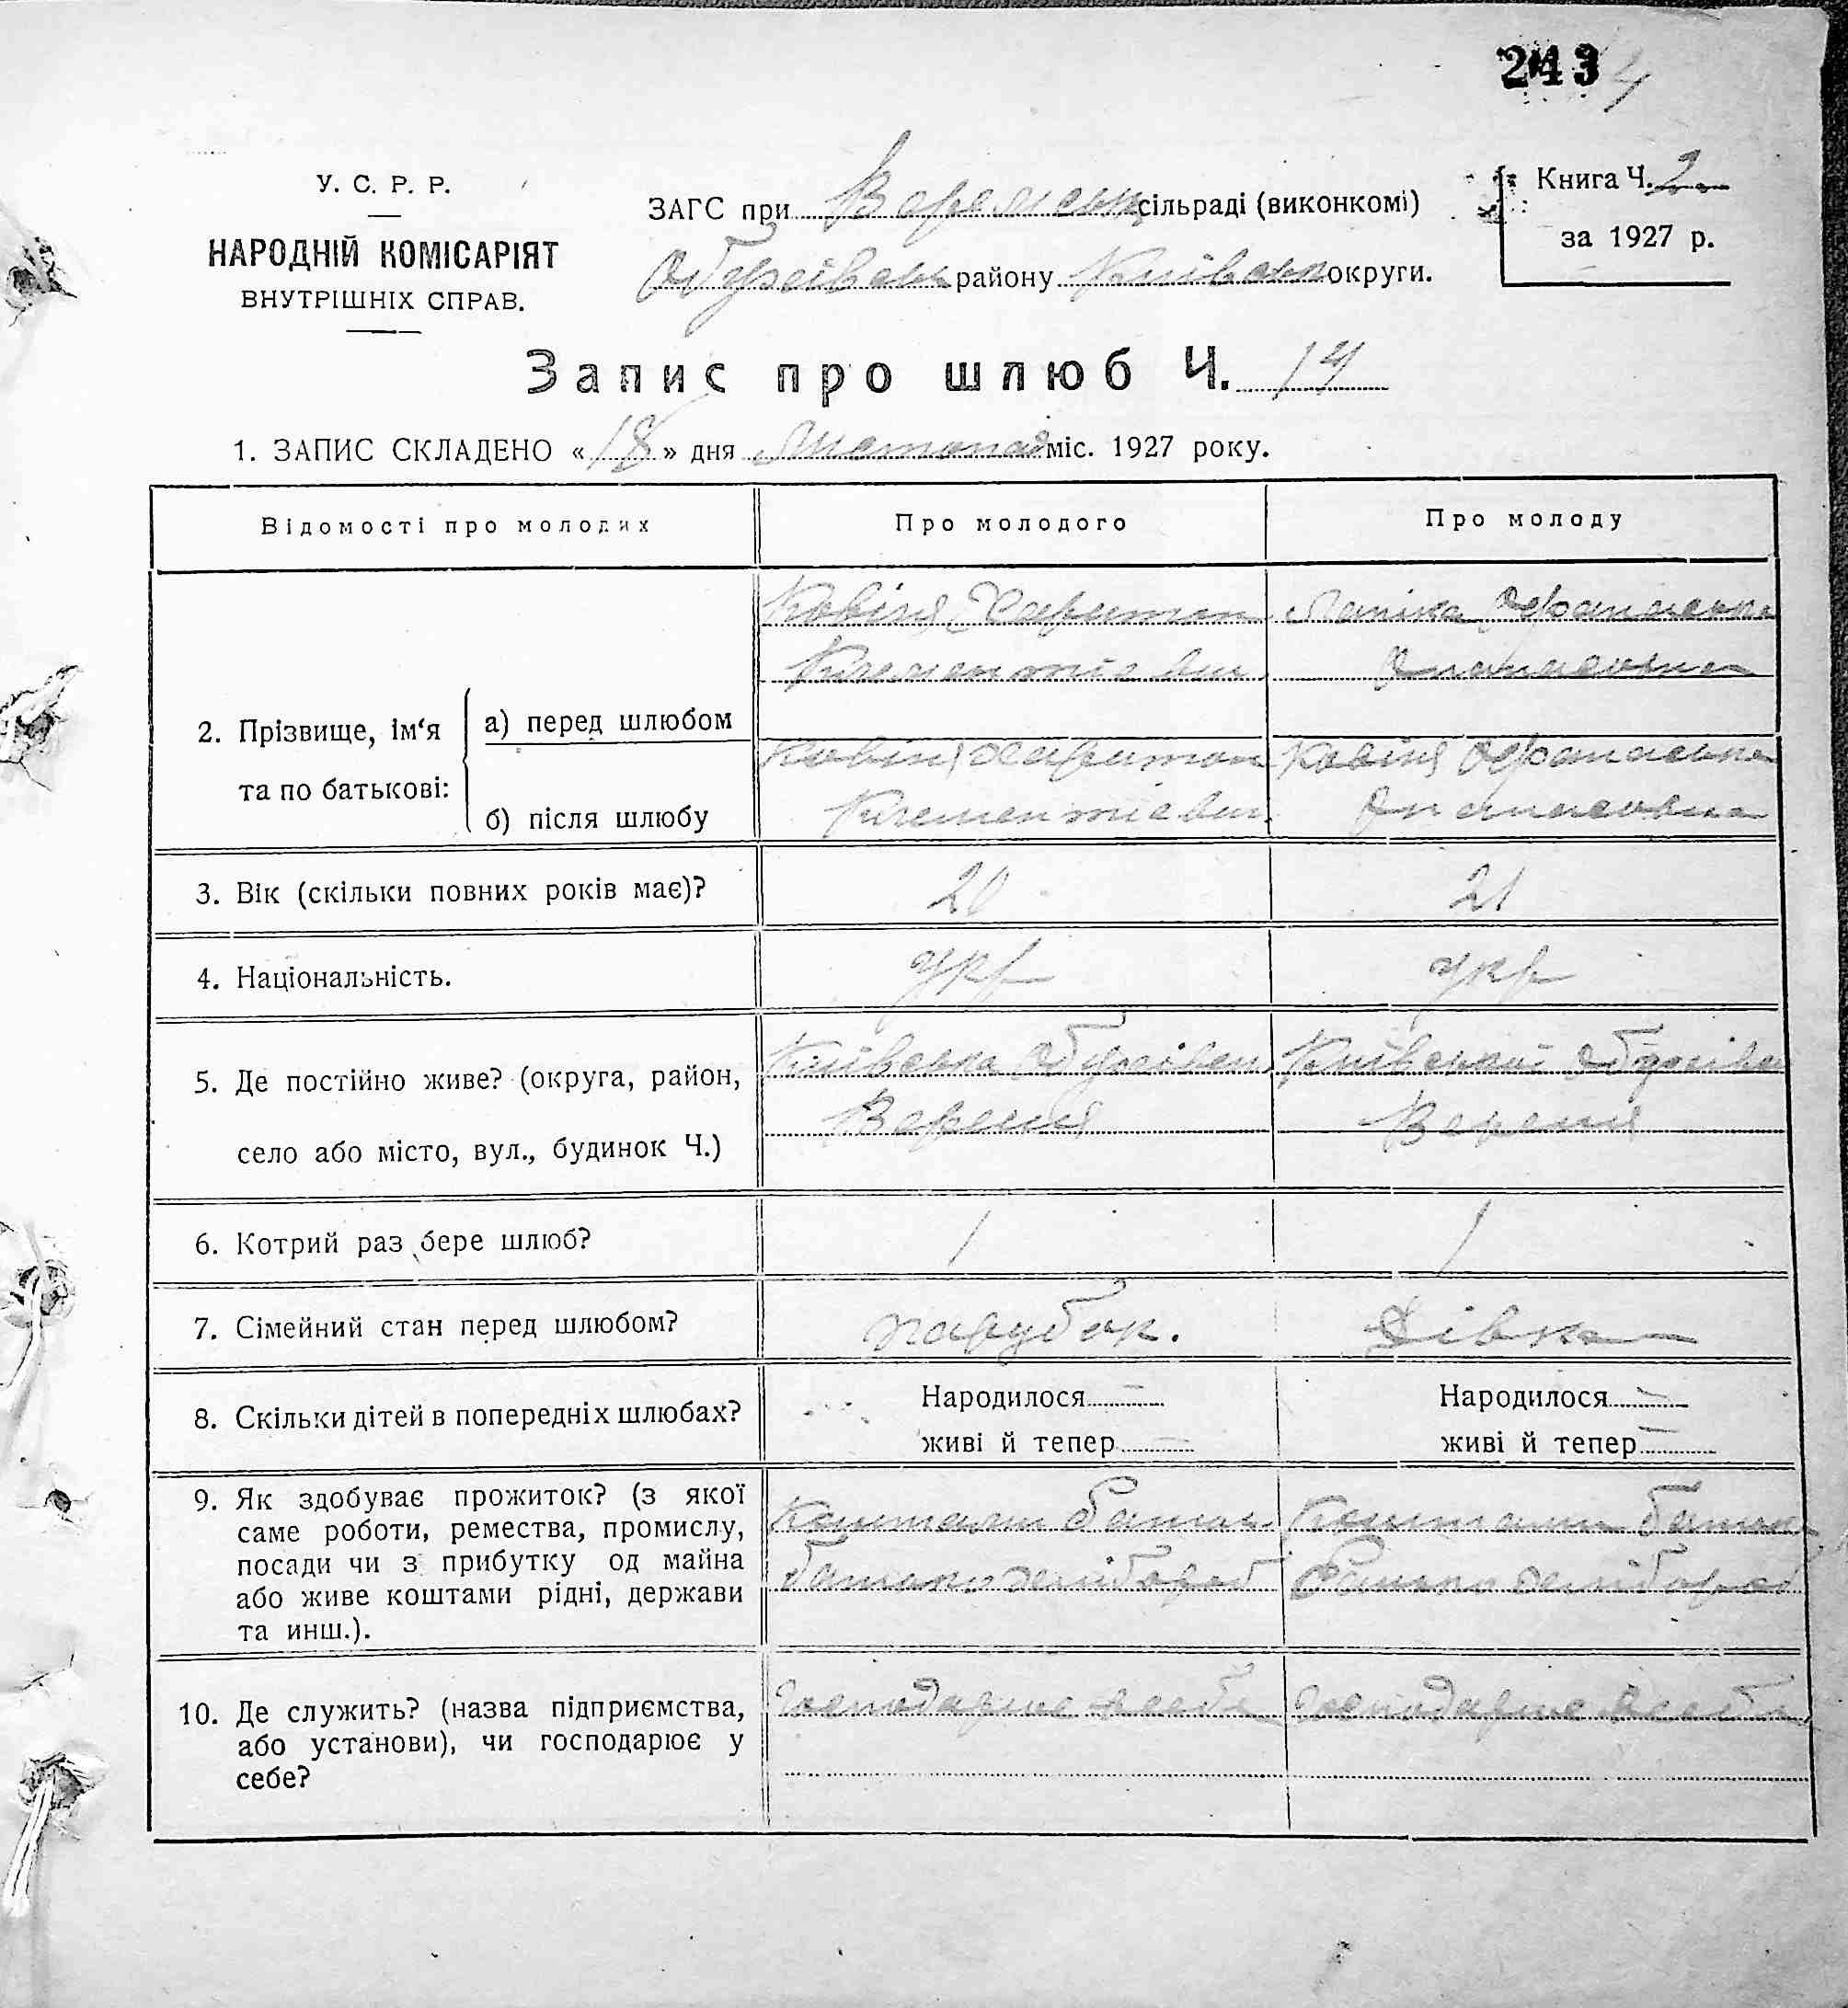 243 4
У. С. Р. Р.
НАРОДНІЙ КОМІСАРІЯТ
ВНУТРІШНІХ СПРАВ.
ЗАГС при Веремськ сільраді (виконкомі)
Обухівськ району Київськ округи.
Книга Ч. 2
за 1927 р.
Запис про шлюб Ч. 14
1. ЗАПИС СКЛАДЕНО « 18 » дня Листопад міс. 1927 року.
Відомості про молодих
Про молодого
Про молоду
2. Прізвище, ім‘я
та по батькові:
а) перед шлюбом
Ковіня Харитон
Климентіевич
Опанасовна
б) після шлюбу
Ковіня Харитон
Климентіевич
Ковіня
Опанасовна
3. Вік (скільки повних років має)?
20
21
4. Національність.
укр
укр
5. Де постійно живе? (округа, район,
село або місто, вул., будинок Ч.)
Київська Обухівськ
Веремя
Київської Обухівськ
Веремя
6. Котрий раз бере шлюб?
1
1
7. Сімейний стан перед шлюбом?
парубок.
Дівка
8. Скільки дітей в попередніх шлюбах?
Народилося —
живі й тепер —
Народилося —
живі й тепер —
9. Як здобуває прожиток? (з якої
саме роботи, ремества, промислу,
посади чи з прибутку од майна
або живе коштами рідні, держави
та инш.).
Коштами батьк
батько хлібороб
Коштами батьк
батько хлібороб
10. Де служить? (назва підприємства,
або установи), чи господарює у
себе?
Господарює в себе
Господарює в себе